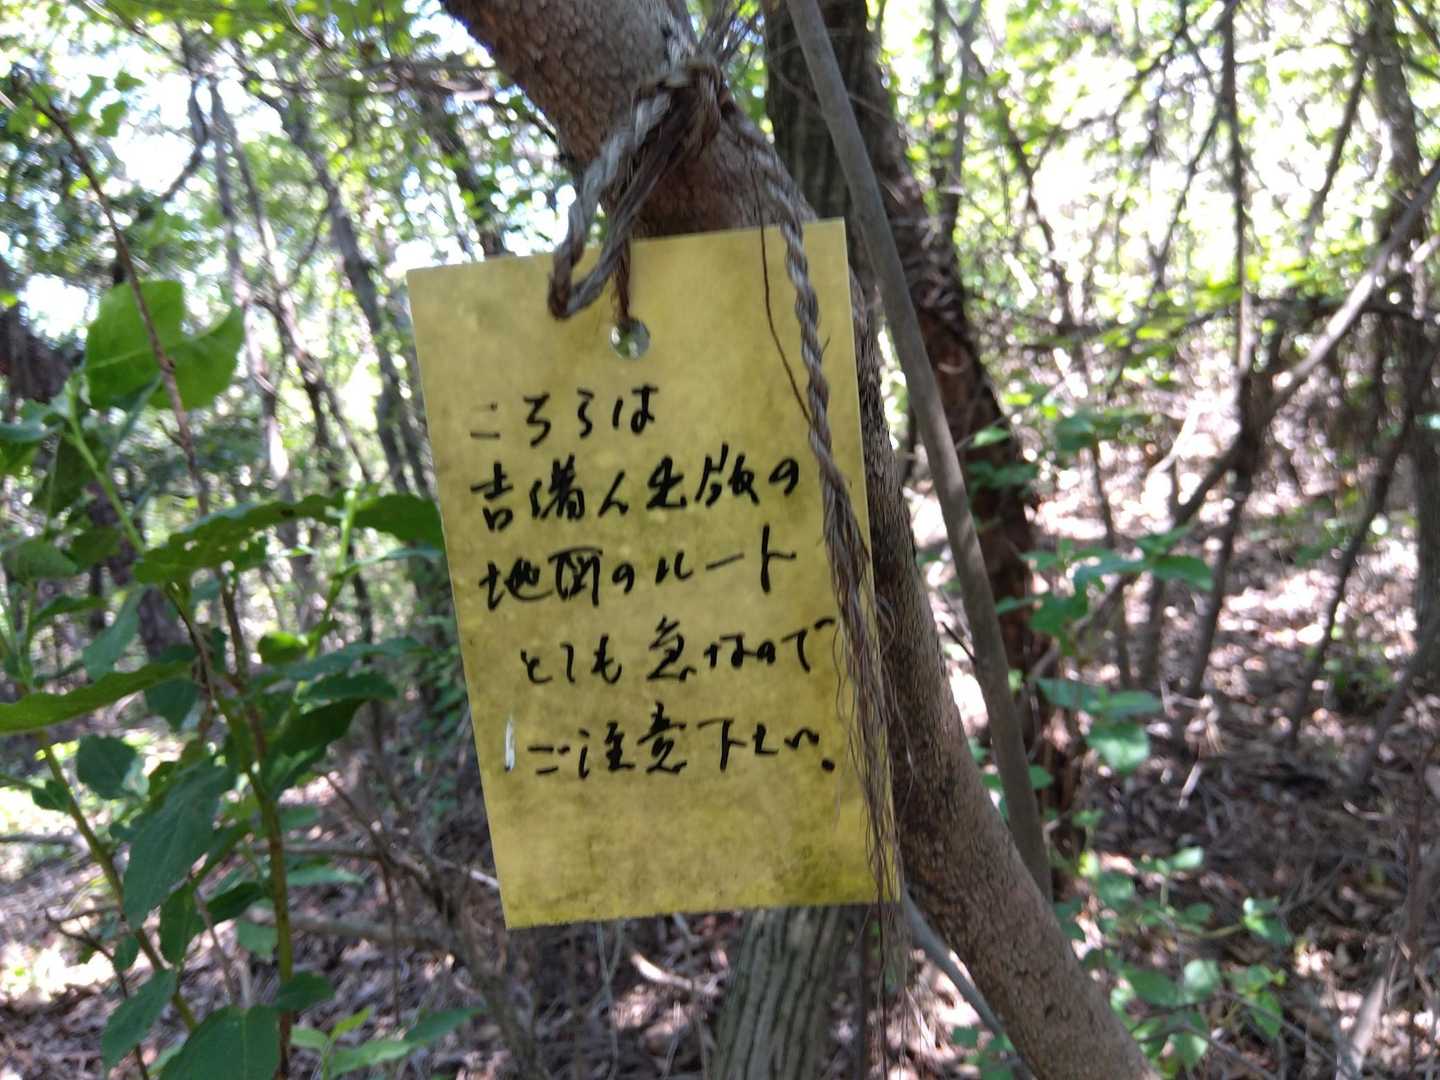 こちらは
吉備人出版の
地図のルート
とても急なので
ご注意下さい。